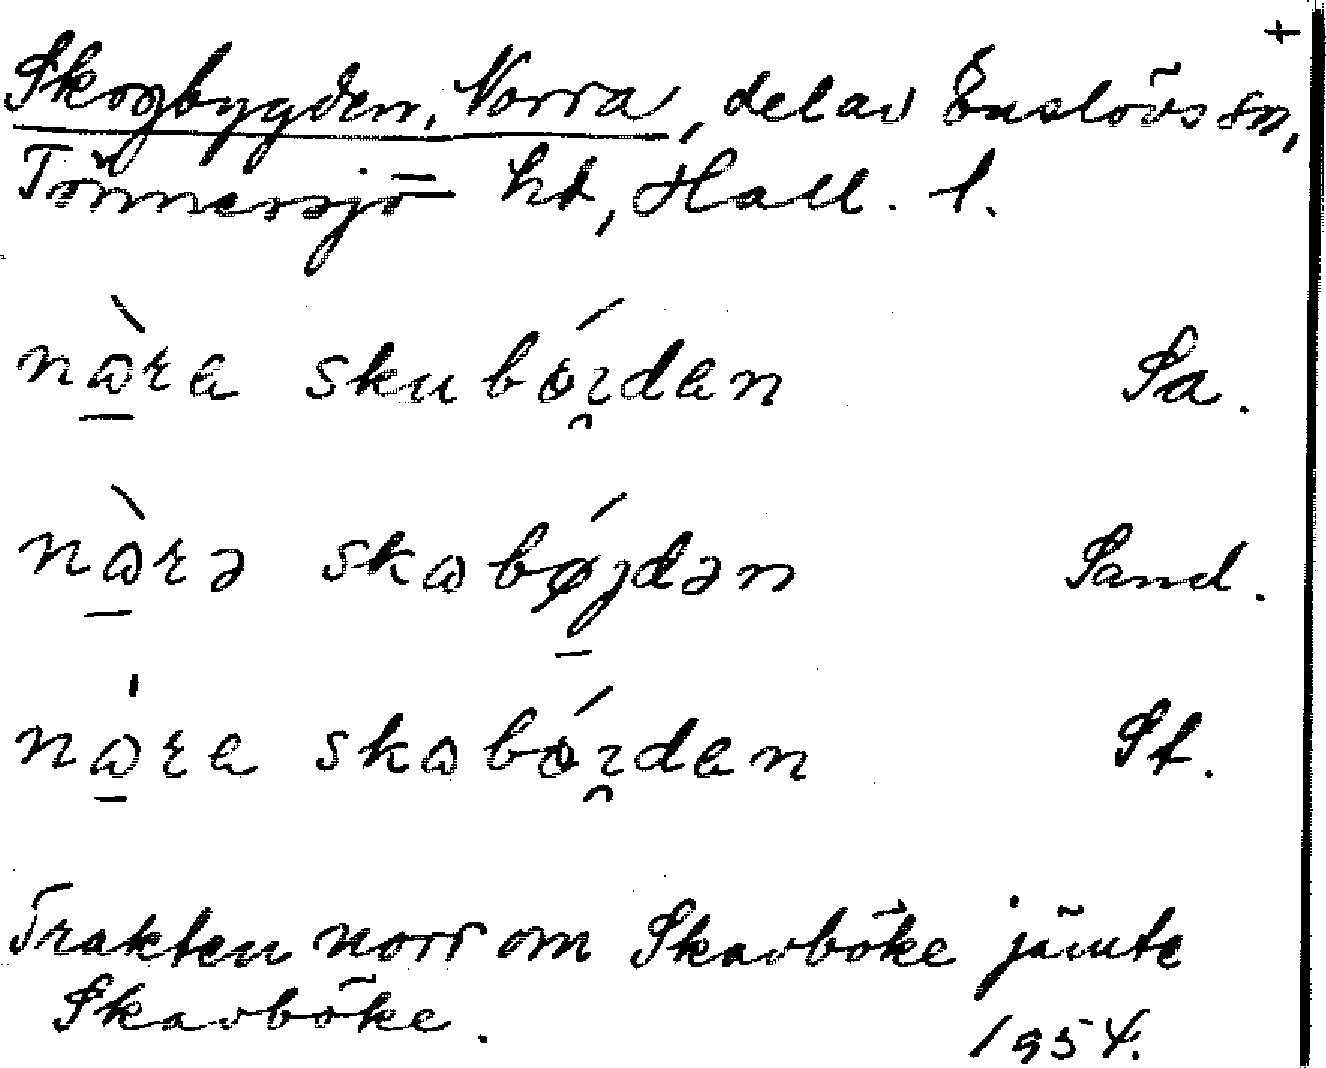 +
Skogbygden, Norra, del av Enslövs sn,
Tönnersjö hd, Hall. l.
nàra skubórdan Sa.
nàrə skabǿjdən Sand.
nàra skabórdan St.
Trakten norr om Skavböke jämte
Skavböke. 1954.